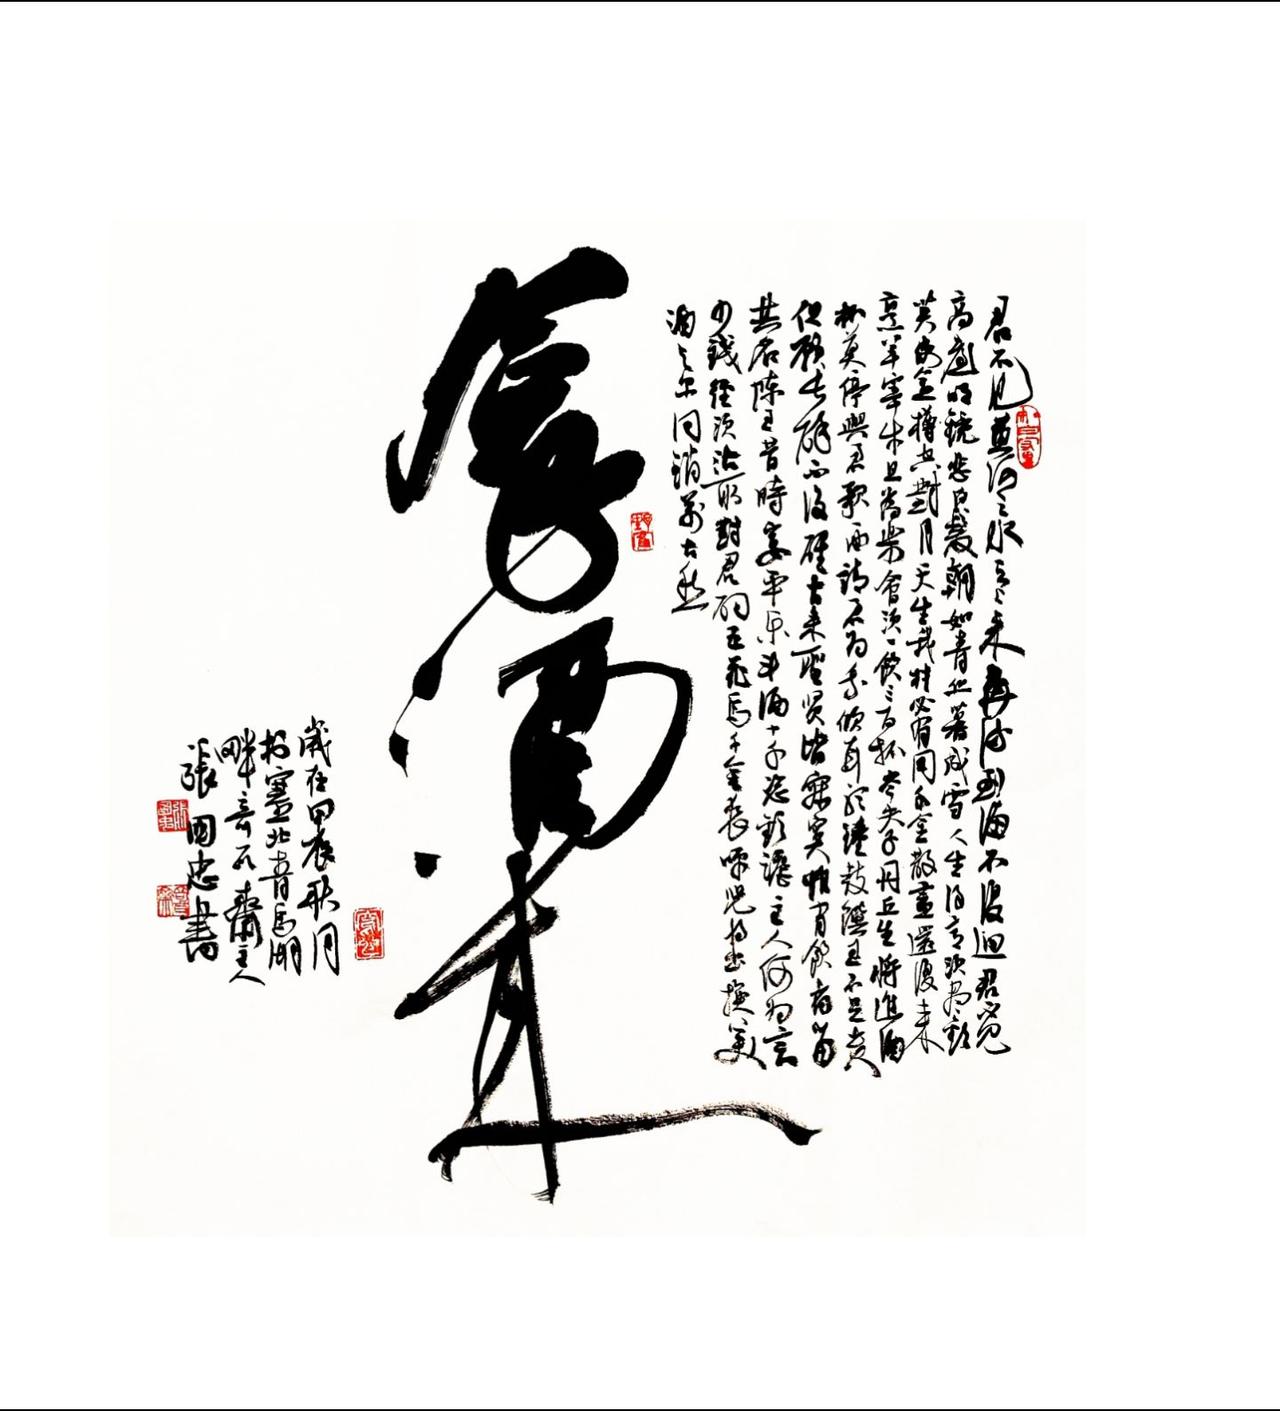 君不見黄河之水天上来奔流到海不復迴君不見
高堂明鏡悲白髮朝如青丝暮成雪人生得意须尽歡
莫使金樽空對月天生我材必有用千金散盡還復来
烹羊宰牛且為樂會须一飲三百杯岑夫子丹丘生將進酒
杯莫停與君歌一曲請君为我傾耳聽鐘鼓饌玉不足貴
但願長醉不復醒古来聖賢皆寂寞惟有飲者留
其名陳王昔時宴平樂斗酒十千恣歡謔主人何为言
少錢径须沽取對君酌五花馬千金裘呼兒将出換美
酒与尔同销萬古愁
拿酒来
歲在甲辰秋月
於塞北青馬湖
畔奇石齋主人
張國忠書